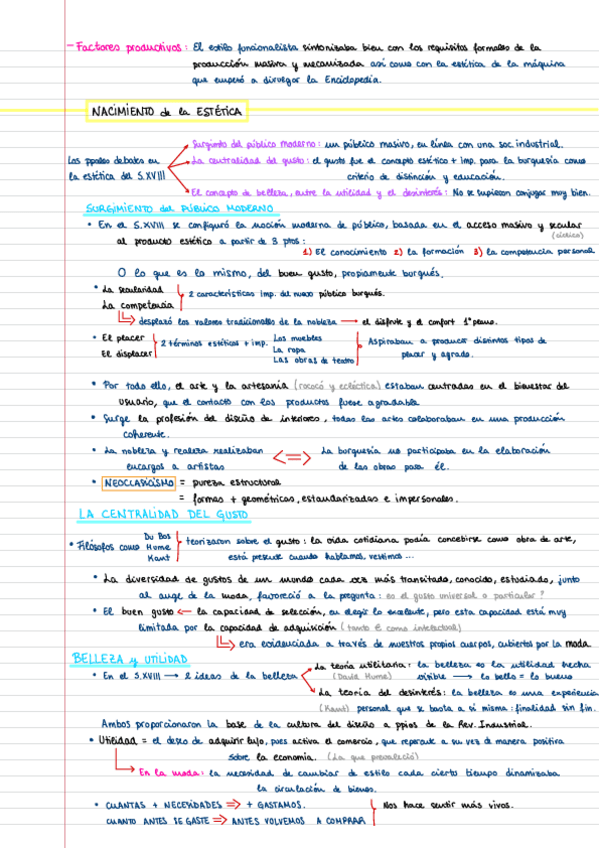 - Factores productivos: El estilo funcionalista sintonizaba bien con los requisitos formales de la
producción masiva y mecanizada así como con la estética de la máquina
que empezó a divulgar la Enciclopedia.
NACIMIENTO de la ESTÉTICA
Los ppales debates en
la estética del S.XVIII
Surgimto del público moderno: un público masivo, en línea con una soc. industrial.
La centralidad del gusto: el gusto fue el concepto estético + imp. para la burguesía como
criterio de distinción y educación.
El concepto de belleza, entre la utilidad y el desinterés: No se supieron conjugar muy bien.
SURGIMIENTO del PÚBLICO MODERNO
• En el S.XVIII se configuró la noción moderna de público, basada en el acceso masivo y secular
al producto estético a partir de 3 ptos:
1) El conocimiento 2) la formación 3) la competencia personal
O lo que es lo mismo, del buen gusto, propiamente burgués.
• La secularidad
La competencia
2 características imp. del nuevo público burgués.
desplazó los valores tradicionales de la nobleza → el disfrute y el confort 1º plano.
• El placer
El displacer
2 términos estéticos + imp.
Los muebles
La ropa
Las obras de teatro
Aspiraban a producir distintos tipos de
placer y agrado.
• Por todo ello, el arte y la artesanía (rococó y ecléctica) estaban centradas en el bienestar del
usuario, que el contacto con los productos fuese agradable
• Surge la profesión del diseño de interiores, todas las artes colaboraban en una producción
coherente.
• La nobleza y realeza realizaban
encargos a artistas
<=>
La burguesía no participaba en la elaboración
de las obras para él.
• NEOCLASICISMO = pureza estructural
= formas + geométricas, estandarizadas e impersonales.
LA CENTRALIDAD DEL GUSTO
• Filósofos como
Du Bos
Hume
Kant
teorizaron sobre el gusto: la vida cotidiana podía concebirse como obra de arte,
está presente cuando hablamos, vestimos...
• La diversidad de gustos de un mundo cada vez más transitado, conocido, estudiado, junto
al auge de la moda, favoreció a la pregunta: es el gusto universal o particular?
• El buen gusto ← la capacidad de selección, en elegir lo excelente, pero esta capacidad está muy
limitada por la capacidad de adquisición (tanto € como intelectual)
era evidenciada a través de nuestros propios cuerpos, cubiertos por la moda.
BELLEZA y UTILIDAD
• En el S.XVIII → 2 ideas de la belleza
La teoría utilitaria: la belleza es la utilidad hecha
(David Hume) visible → lo bello = lo bueno
La teoría del desinterés: la belleza es una experiencia
(Kant) personal que se basta a sí misma: finalidad sin fin.
Ambos proporcionaron la base de la cultura del diseño a ppios de la Rev. Industrial.
• Utilidad = el deseo de adquirir lujo, pues activa el comercio, que repercute a su vez de manera positiva
sobre la economía. (La que prevaleció)
En la moda: la necesidad de cambiar de estilo cada cierto tiempo dinamizaba
la circulación de bienes.
• CUANTAS + NECESIDADES => + GASTAMOS.
CUANTO ANTES SE GASTE => ANTES VOLVEMOS A COMPRAR
Nos hace sentir más vivos.